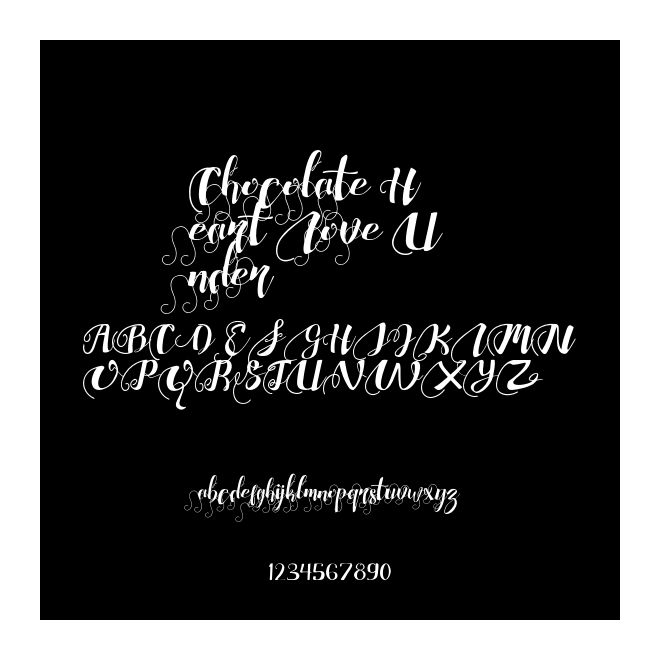 Chocolate H
eart Love U
nder
ABCDEFGHIJKLMN
OPQRSTUVWXYZ
abcdefghijklmnopqrstuvwxyz
1234567890